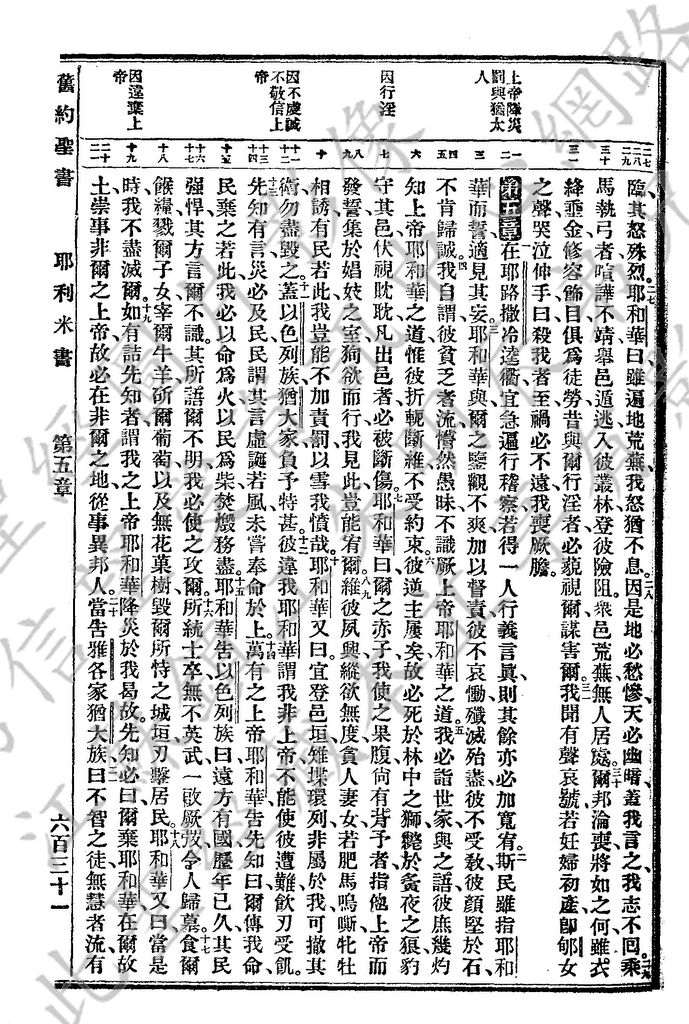 舊約聖書 耶利米書 第五章 六百三十一
上帝降災罰與猶太人
因行淫
因不虔誠不敬信上帝
因違棄上帝
臨其怒殊烈耶和華曰雖遍地荒蕪我怒猶不息因是地必愁慘天必幽暗蓋我言之我志不回乘
馬執弓者喧譁不靖舉邑遁逃入彼叢林登彼險阻衆邑荒蕪無人居處爾邦淪喪將如之何雖衣
絳垂金修容飾目俱為徒勞昔與爾行淫者必藐視爾謀害爾我聞有聲哀號若妊婦初產卽郇女
之聲哭泣伸手曰殺我者至禍必不遠我喪厥膽
第五章在耶路撒冷逵衢宜急遍行稽察若得一人行義言眞則其餘亦必加寬宥斯民雖指耶和
華而誓適見其妄耶和華與爾之鑒觀不爽加以督責彼不哀慟殲滅殆盡彼不受敎彼顏堅於石
不肯歸誠我自謂彼貧乏者流懵然愚昧不識厥上帝耶和華之道我必詣世家與之語彼庶幾灼
知上帝耶和華之道惟彼折軛斷維不受約束彼逆主屢矣故必死於林中之獅斃於夤夜之狼豹
守其邑伏視眈眈凡出邑者必被斷傷耶和華曰爾之赤子我使之果腹尚有背予者指他上帝而
發誓集於娼妓之室狥欲而行我見此豈能宥爾維彼夙興縱欲無度貪人妻女若肥馬嘶嘶牝牡
相誘有民若此我豈能不加責罰以雪我憤哉耶和華又曰宜登邑垣雉堞環列非屬於我可撤其
衛勿盡毀之蓋以色列族猶大家負予特甚彼違我耶和華謂我非上帝不能使彼遭難飲刃受飢
先知有言災必及民民謂其言虛誕若風未嘗奉命於上萬有之上帝耶和華告先知曰爾傳我命
民棄之若此我必以命為火以民為柴焚燬務盡耶和華告以色列族曰遠方有國歷年已久其民
強悍其方言爾不識其所語爾不明我必使之攻爾所統士卒無不英武一啟厥菆令人歸墓食爾
餱糧戮爾子女宰爾牛羊斫爾葡萄以及無花菓樹毀爾所恃之城垣刃擊居民耶和華又曰當是
時我不盡滅爾如有詰先知者謂我之上帝耶和華降災於我曷故先知必曰爾棄耶和華在爾故
土崇事非爾之上帝故必在非爾之地從事異邦人當告雅各家猶大族曰不智之徒無慧者流有